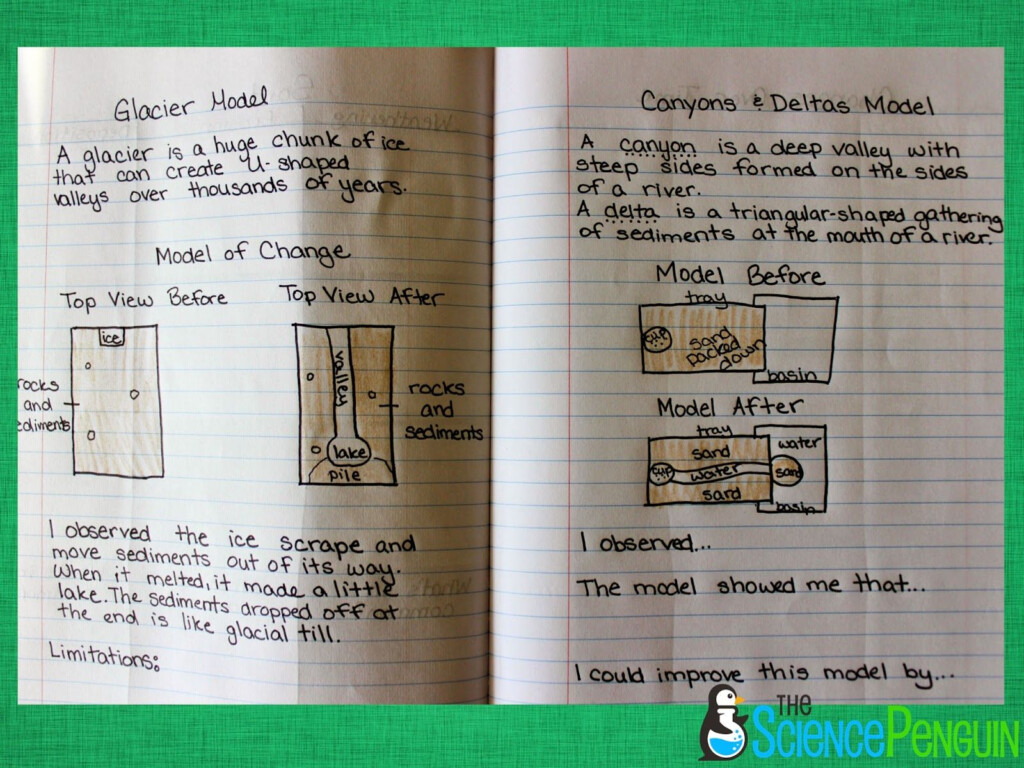 Glacier Model
A glacier is a huge chunk of ice
that can create U-shaped
valleys over thousands of years.
Model of Change
Top View Before
Top View After
ice
rocks
and
ediments
valley
lake
pile
rocks
and
sediments
I observed the ice scrape and
move sediments out of its way.
When it melted, it made a little
lake. The sediments dropped off at
the end is like glacial till.
Limitations:
Canyons & Deltas Model
A canyon is a deep valley with
steep sides formed on the sides
of a river.
A delta is a triangular-shaped gathering
of sediments at the mouth of a river.
Model Before
tray
sand
packed
down
basin
Model After
tray
sand
water
sand
water
sand
basin
I observed...
The model showed me that...
I could improve this model by...
THE
SciencePenguin